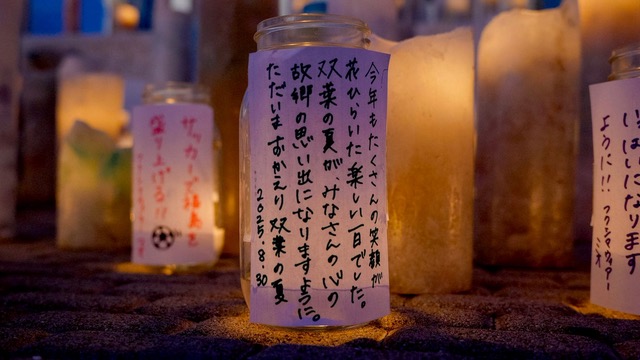 今年もたくさんの笑顔が
花ひらいた楽しい一日でした。
双葉の夏が、みなさんの心の
故郷の思い出になりますように。
ただいま おかえり 双葉の夏
2025.8.30
サッカーで福島を
盛り上げる!!
いっぱいになります
ように!!